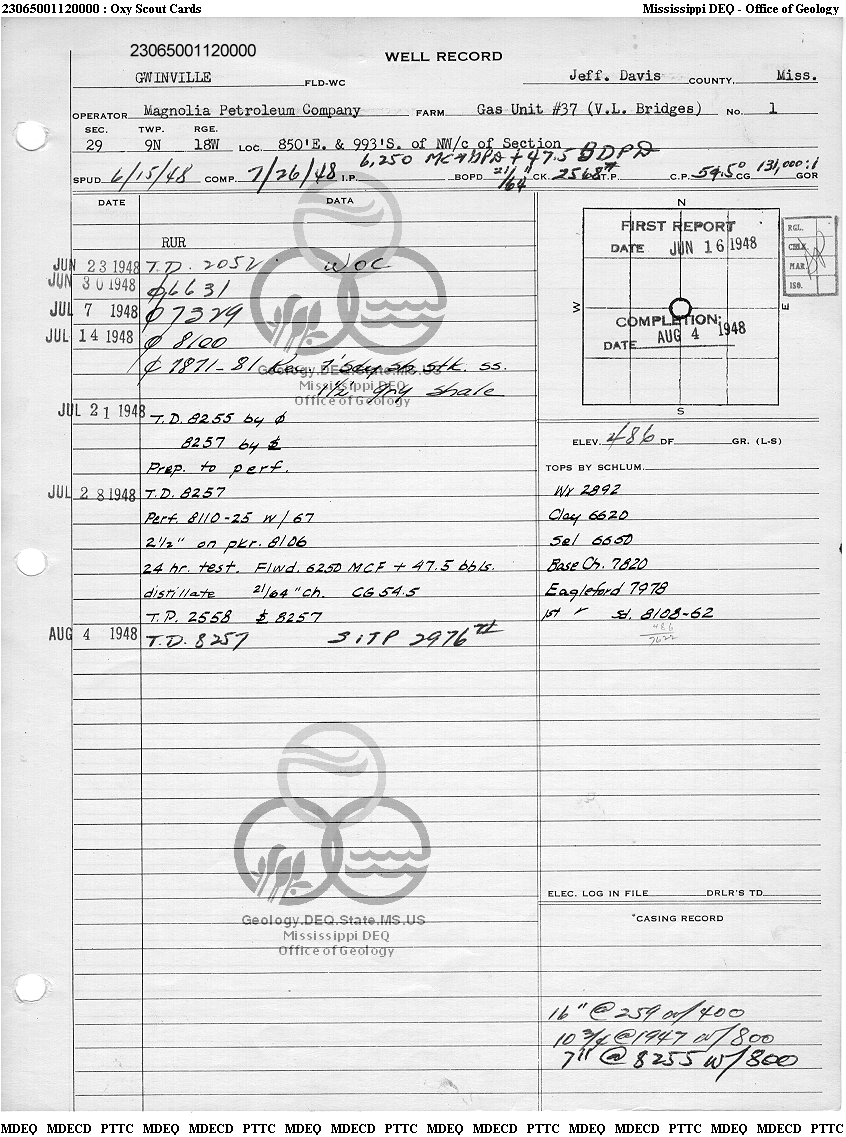 23065001120000 : Oxy Scout Cards Mississippi DEQ - Office of Geology
23065001120000
WELL RECORD
GWINVILLE FLD-WC Jeff. Davis COUNTY, Miss.
OPERATOR Magnolia Petroleum Company FARM Gas Unit #37 (V.L. Bridges) No. 1
SEC. TWP. RGE.
29 9N 18W LOC. 850'E. & 993'S. of NW/c of Section
6,250 MCFGPD + 47.5 BDPD
SPUD 6/15/48 COMP. 7/26/48 I.P. BOPD 21/64" CK. 2568# T.P. C.P. 54.5° CG 131,000:1 GOR
DATE DATA
RUR
JUN 23 1948 T.D. 2052 WOC
JUN 30 1948 6631
JUL 7 1948 7329
JUL 14 1948 8100
7871-81 Rec. 7' sdy sh, stk. ss.
1½' gry shale
JUL 21 1948 T.D. 8255 by
8257 by
Prep. to perf.
JUL 28 1948 T.D. 8257
Perf. 8110-25 w/67
2½" on pkr. 8106
24 hr. test. Flwd. 6250 MCF + 47.5 bbls.
distillate 21/64" ch. CG 54.5
T.P. 2558 $ 8257
AUG 4 1948 T.D. 8257 SITP 2976#
N
FIRST REPORT
DATE JUN 16 1948
W E
COMPLETION:
DATE AUG 4 1948
S
RGL.
CHEK
MAR
ISO.
ELEV. 486 DF GR. (L-S)
TOPS BY SCHLUM.
Wx 2892
Clay 6620
Sel 6650
Base Ch. 7820
Eagleford 7978
1st Sd. 8108-62
486
7622
ELEC. LOG IN FILE DRLR'S TD
*CASING RECORD
16" @ 259 w/400
10 3/4 @ 1947 w/800
7" @ 8255 w/800
Geology.DEQ.State.MS.US
Mississippi DEQ
Office of Geology
Geology.DEQ.State.MS.US
Mississippi DEQ
Office of Geology
MDEQ MDECD PTTC MDEQ MDECD PTTC MDEQ MDECD PTTC MDEQ MDECD PTTC MDEQ MDECD PTTC MDEQ MDECD PTTC